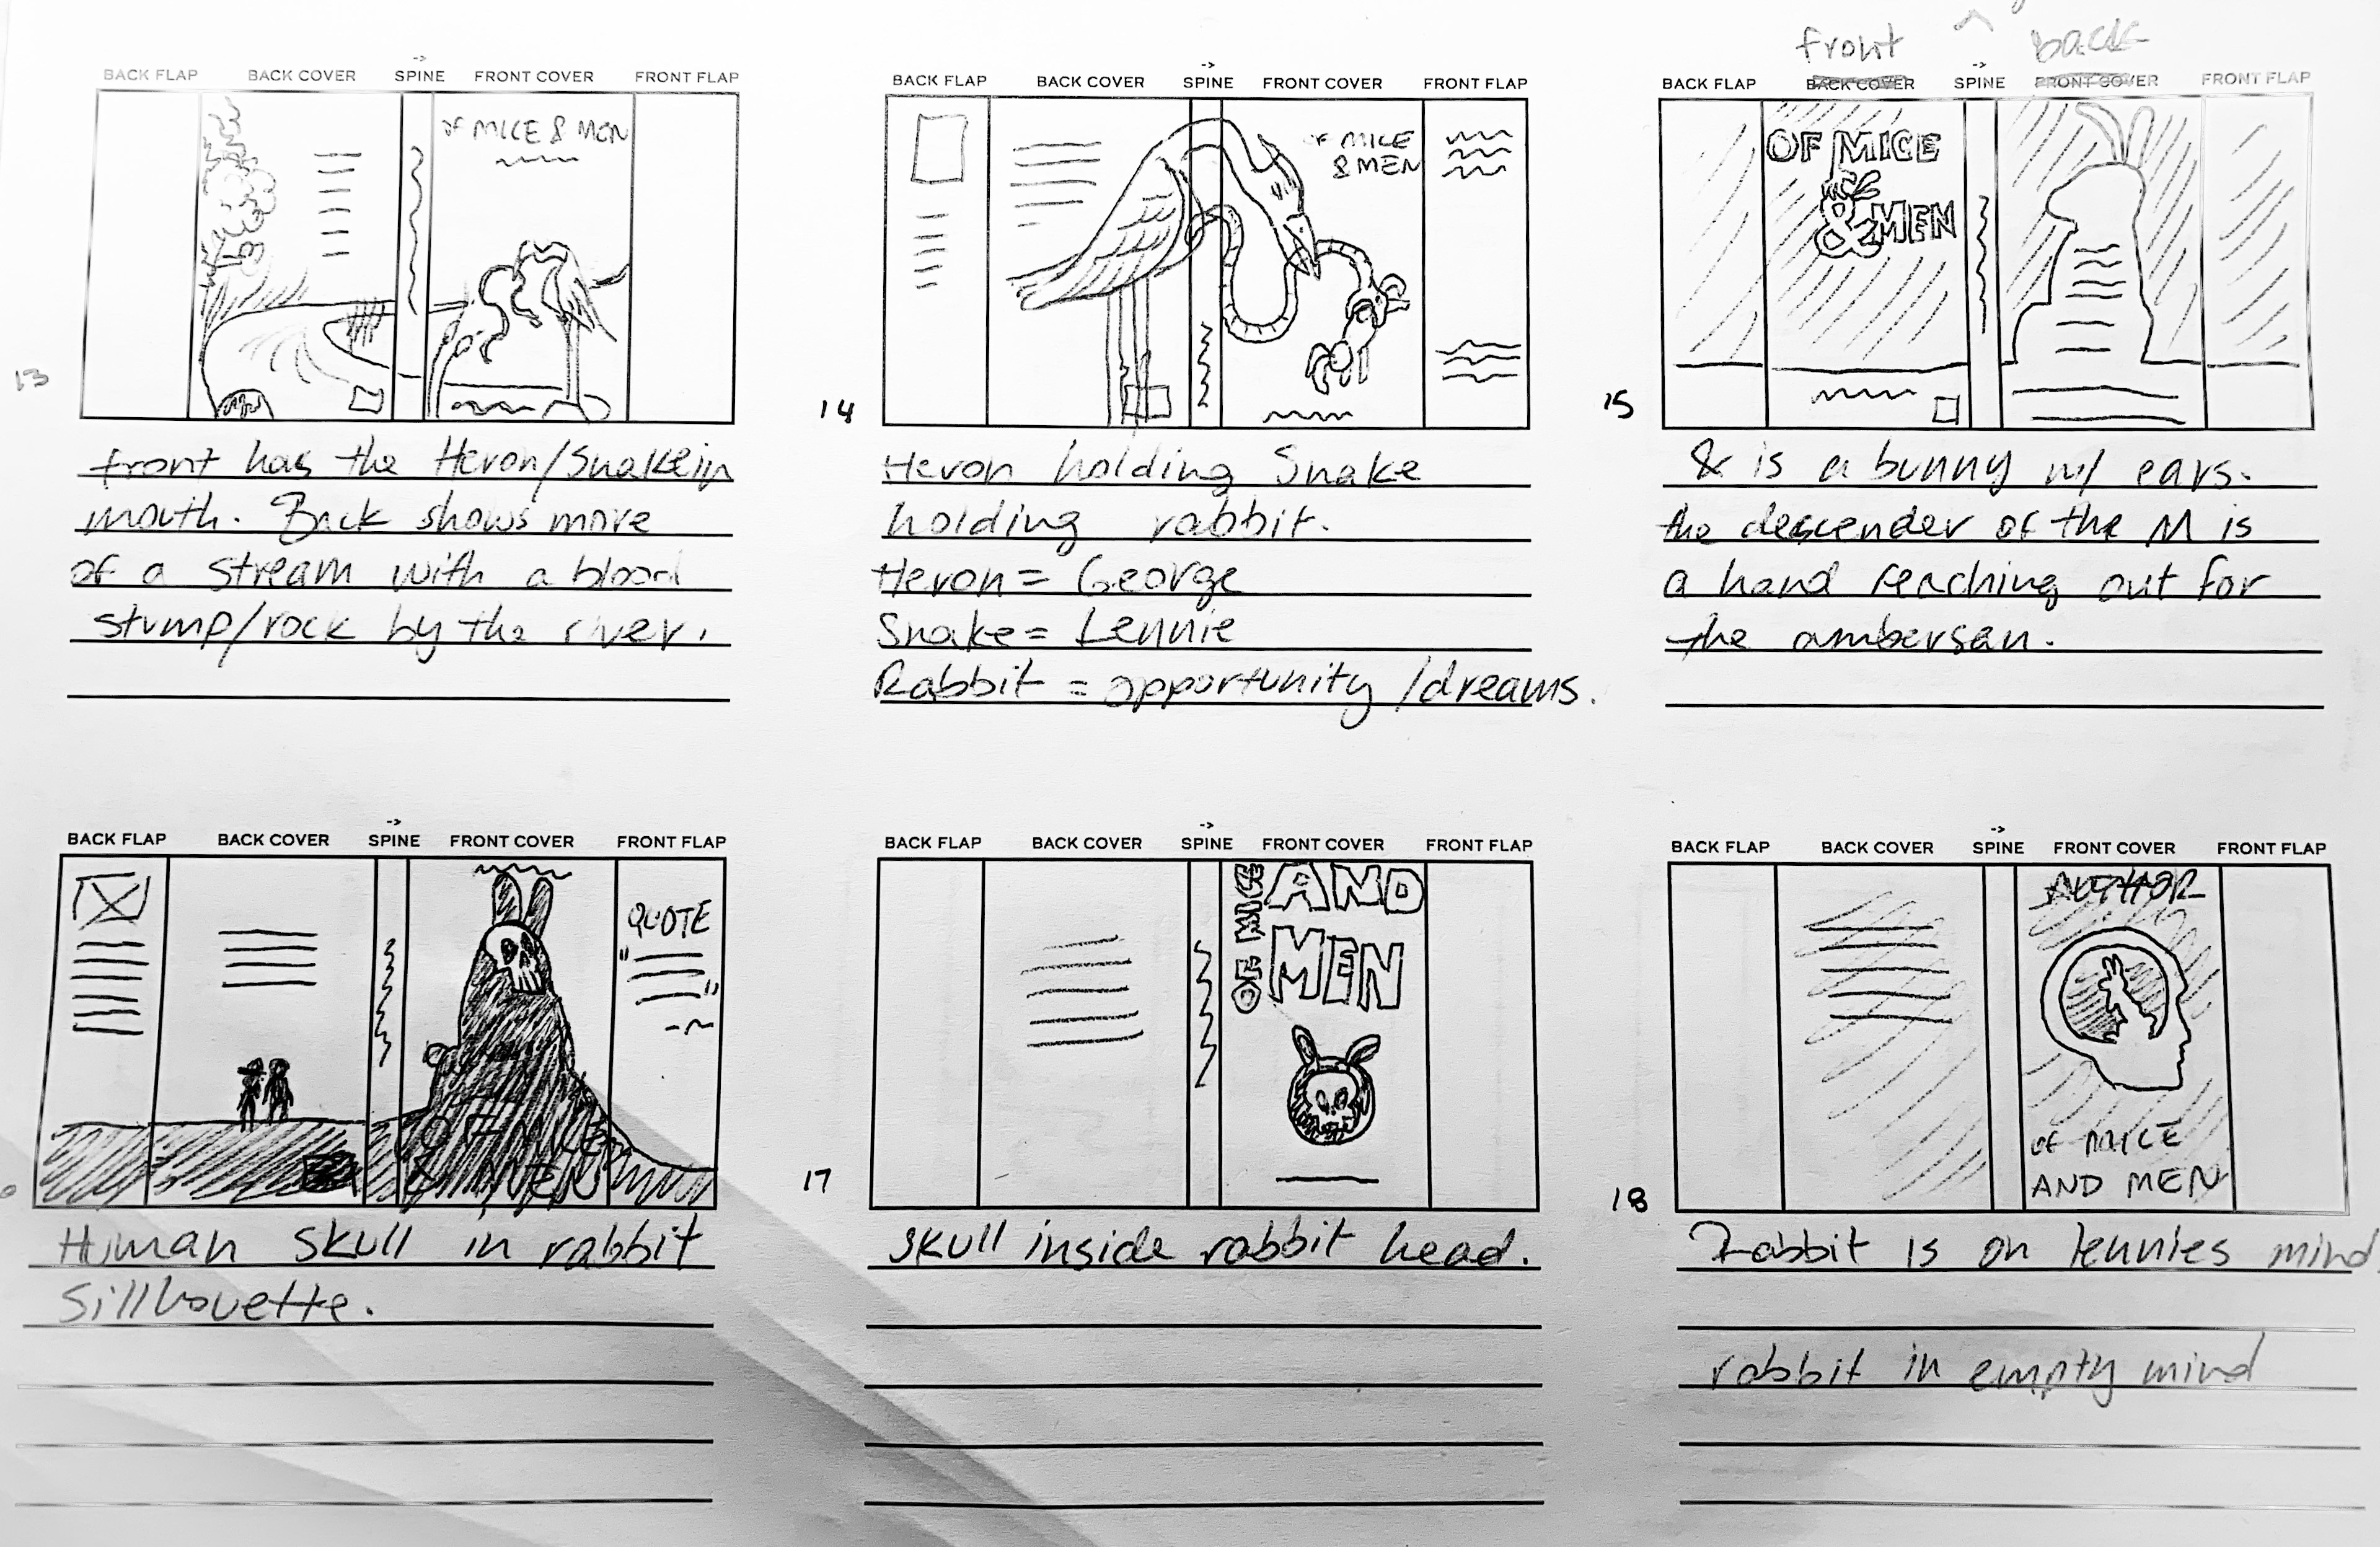 BACK FLAP BACK COVER -> SPINE FRONT COVER FRONT FLAP
OF MICE & MEN
13
front has the Heron/Snake in
mouth. Back shows more
of a stream with a blood
stump/rock by the river.
BACK FLAP BACK COVER -> SPINE FRONT COVER FRONT FLAP
OF MICE
& MEN
14
Heron holding Snake
holding rabbit.
Heron = George
Snake = Lennie
Rabbit = opportunity/dreams.
front back
BACK FLAP BACK COVER -> SPINE FRONT COVER FRONT FLAP
OF MICE
& MEN
15
& is a bunny w/ ears.
the descender of the M is
a hand reaching out for
the ambersan.
BACK FLAP BACK COVER -> SPINE FRONT COVER FRONT FLAP
QUOTE
" "
OF MICE
& MEN
Human skull in rabbit
Sillhouette.
BACK FLAP BACK COVER -> SPINE FRONT COVER FRONT FLAP
OF MICE
AND
MEN
17
skull inside rabbit head.
BACK FLAP BACK COVER -> SPINE FRONT COVER FRONT FLAP
AUTHOR
OF MICE
AND MEN
18
Rabbit is on lennies mind.
rabbit in empty mind